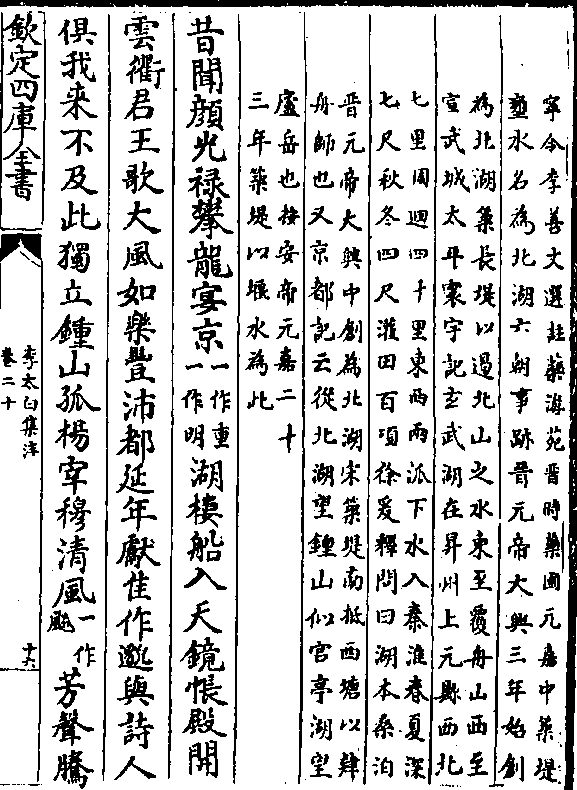 寧令李善文選註藥游苑晉時藥圃元嘉中築堤
壅水名為北湖六朝事跡晉元帝大興三年始創
為北湖築長堤以遏北山之水東至覆舟山西至
宣武城太平寰宇記玄武湖在昇州上元縣西北
七里周廻四十里東西兩派下水入秦淮春夏深
七尺秋冬四尺灌田百項徐爰釋問曰湖本桑泊
晉元帝大興中創為北湖宋築堤南抵西塘以肄
舟師也又京都記云從北湖望鍾山似宫亭湖望
廬岳也按安帝元嘉二十
三年築堤以堰水為此
昔聞顔光禄攀龍宴京一作重一作明湖樓船入天鏡帳殿開
雲衢君王歌大風如樂豐沛都延年獻佳作邈與詩人
俱我來不及此獨立鍾山孤楊宰穆清風一作飈芳聲騰
欽定四庫全書
李太白集注
卷二十
十六